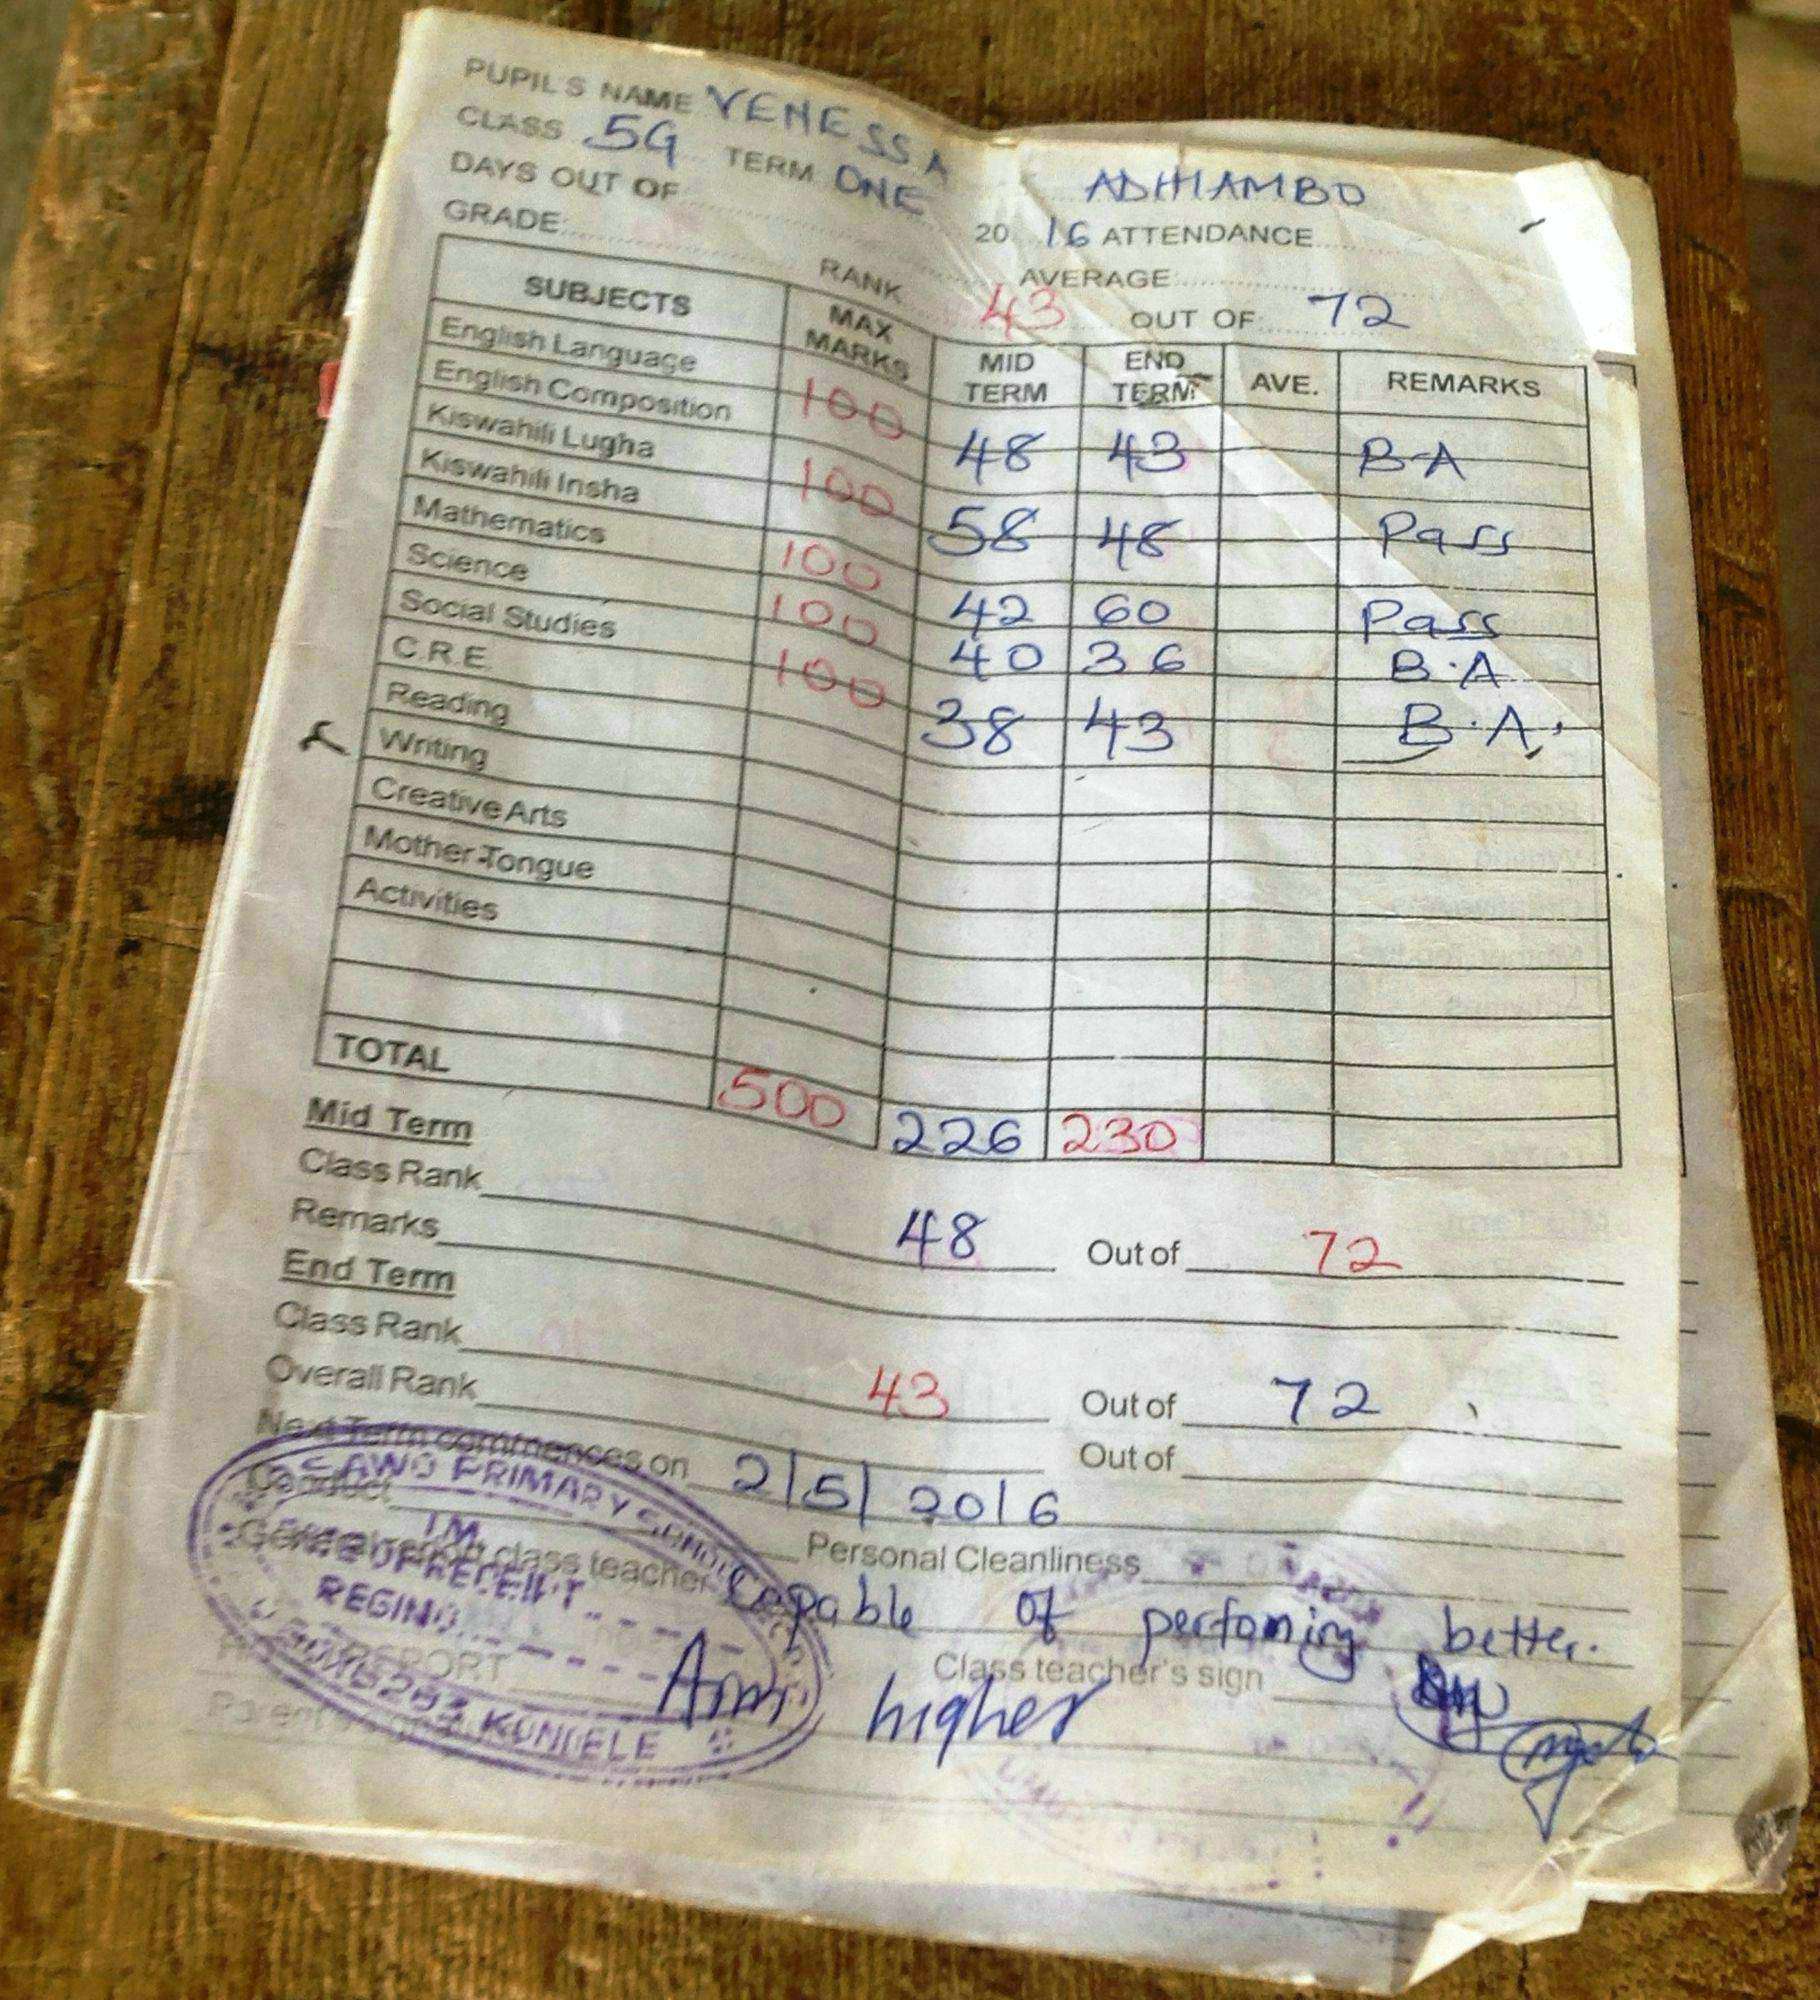 PUPIL'S NAME VENESSA ADHIAMBO
CLASS 5G TERM ONE 2016 ATTENDANCE
DAYS OUT OF AVERAGE
GRADE: RANK 43 OUT OF 72
SUBJECTS MAX MARKS MID TERM END TERM AVE. REMARKS
English Language
English Composition 100 48 43 B-A
Kiswahili Lugha
Kiswahili Insha 100 58 48 Pass
Mathematics 100 42 60 Pass
Science 100 40 36 B.A
Social Studies
C.R.E. 100 38 43 B.A.
Reading
Writing
Creative Arts
Mother Tongue
Activities
TOTAL 500 226 230
Mid Term
Class Rank 48 Out of 72
Remarks
End Term
Class Rank 43 Out of 72
Overall Rank Out of
Next Term commences on 2/5/2016
Conduct Personal Cleanliness
class teacher Capable of perfoming better.
REPORT Class teacher's sign
Aim higher
PRIMARY SCHOOL